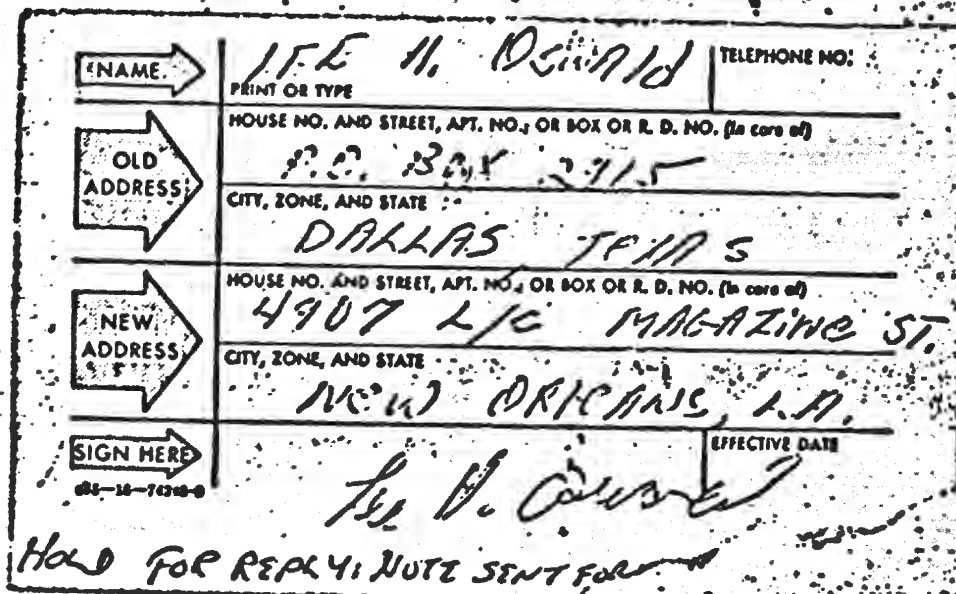 NAME.
LEE H. OSWAld
TELEPHONE NO:
PRINT OR TYPE
OLD ADDRESS
HOUSE NO. AND STREET, APT. NO., OR BOX OR R. D. NO. (In care of)
P.O. BOX 2915
CITY, ZONE, AND STATE
DALLAS, TEXAS
NEW ADDRESS
HOUSE NO. AND STREET, APT. NO., OR BOX OR R. D. NO. (In care of)
4907 MAGAZINE ST.
CITY, ZONE, AND STATE
NEW ORLEANS, LA.
SIGN HERE
EFFECTIVE DATE
Lee H. Oswald
HOLD FOR REPLY: NOTE SENT FOR